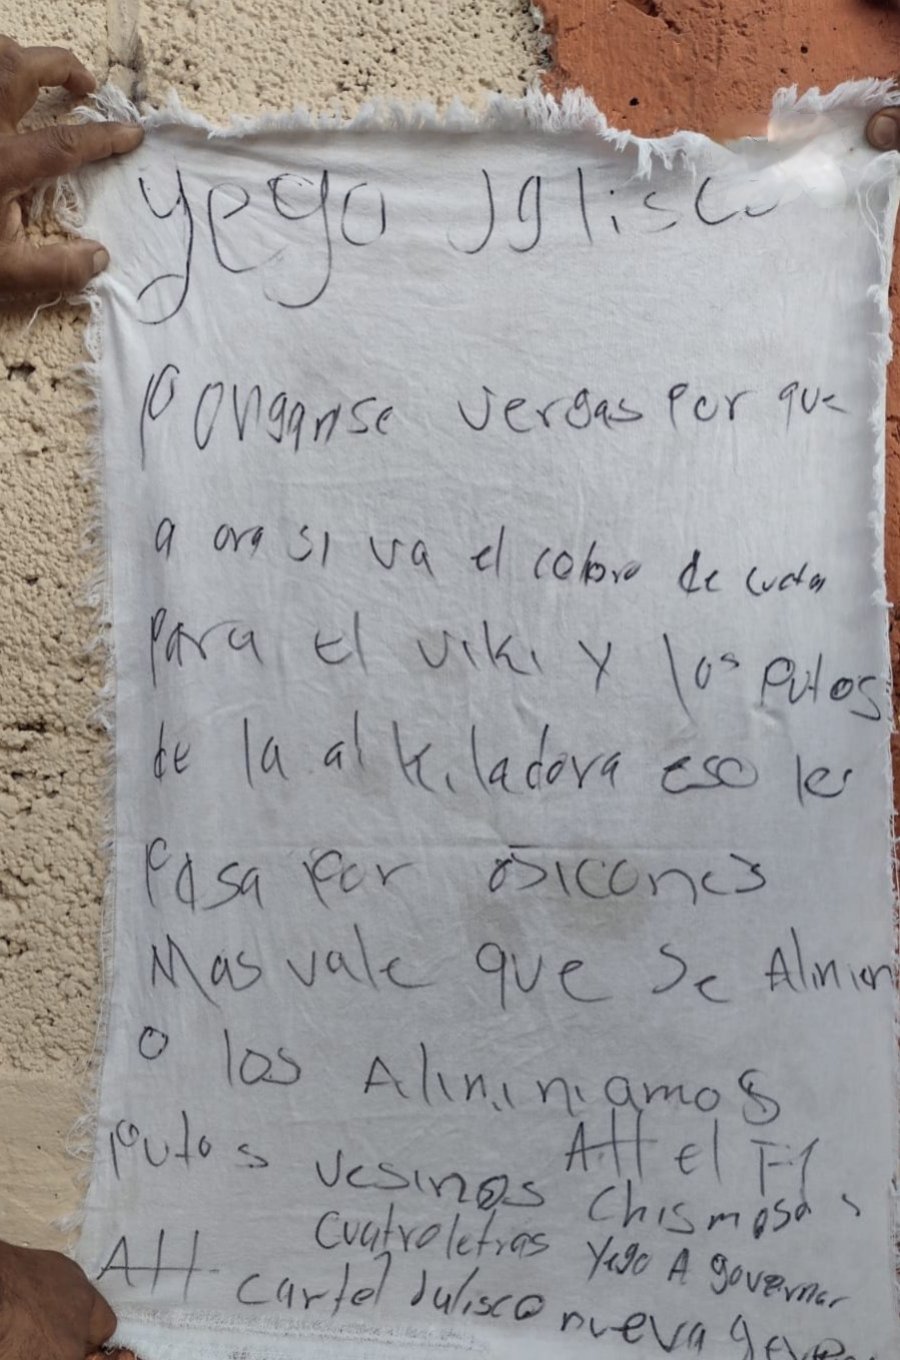 yego Jalisco
Ponganse vergas Por que
a ora si va el cobro de cuota
Para el viki y los Putos
de la alkiladora eso les
Pasa Por osicones
Mas vale que se Alinien
o los Alininiamos
Putos vesinos Att el F1
chismosos
cuatroletras yego A governar
Att. cartel Julisco nueva